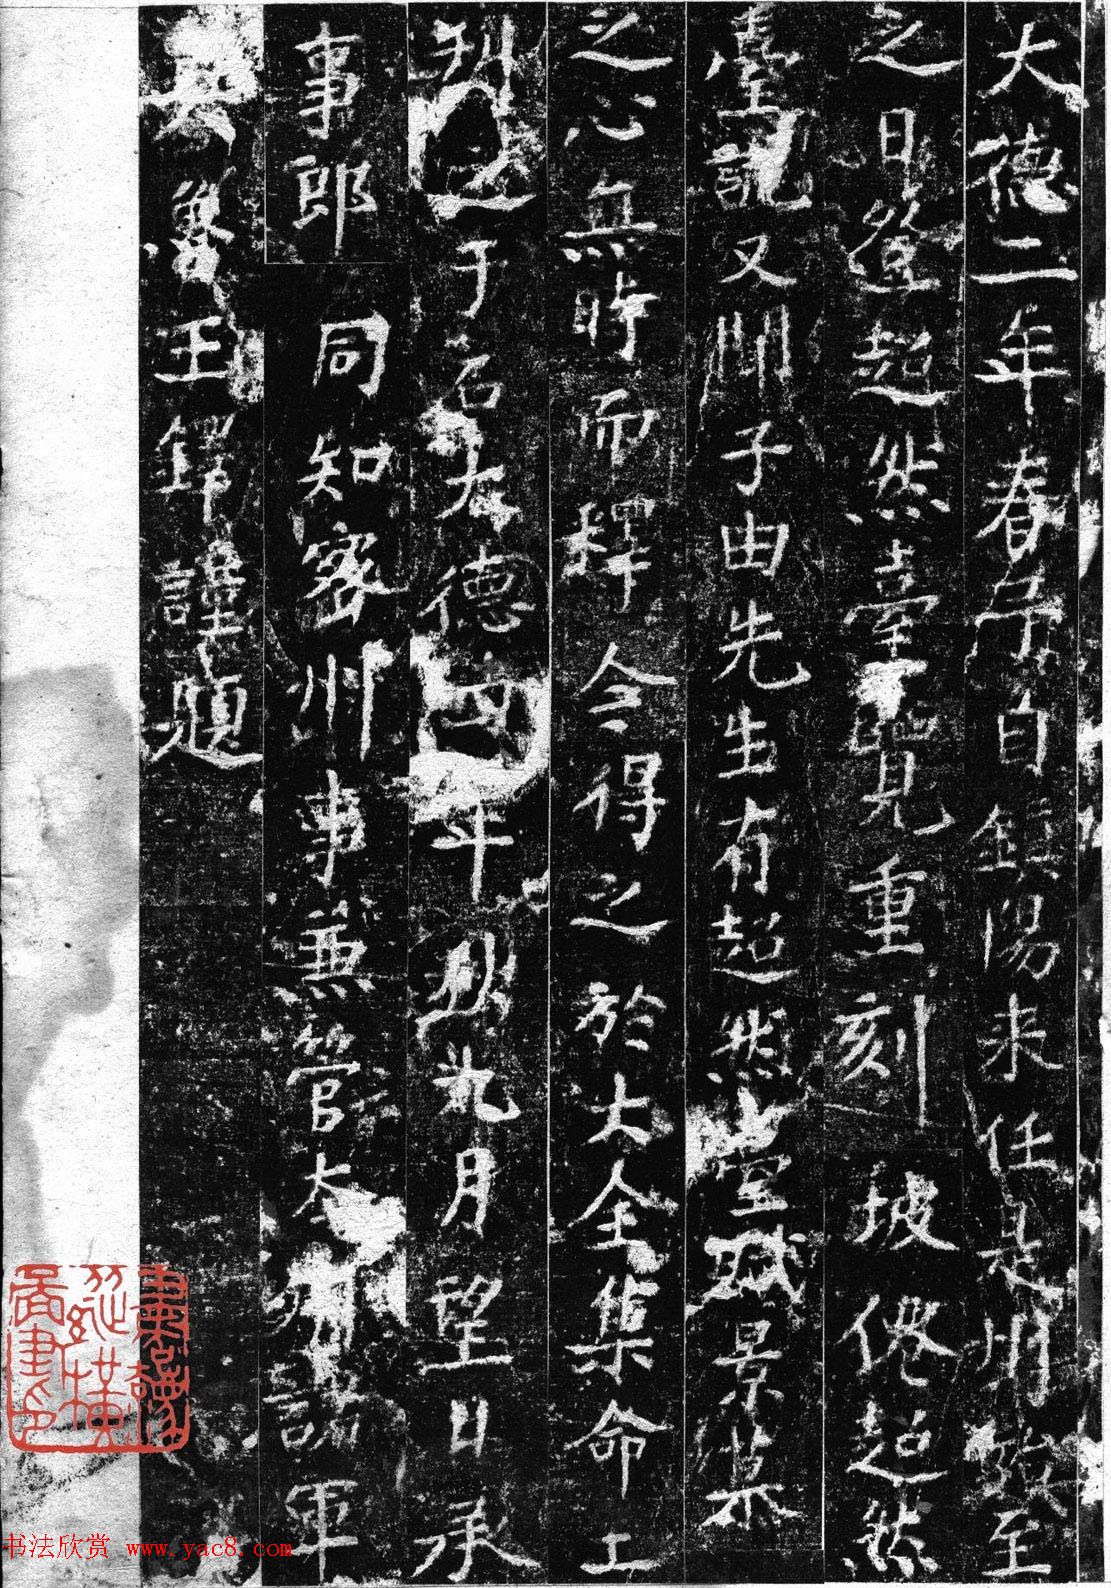 大德二年春予自鎮陽来任是州始至
之日登超然臺臨見重刻坡仙超然
臺記又聞子由先生有超然臺賦景慕
之心無時而釋今得之於大全集命工
刊之于石大德年九月望日承
事郎同知密州事兼管本諸軍
奥魯王鐸謹題
书法欣赏 www.yac8.com